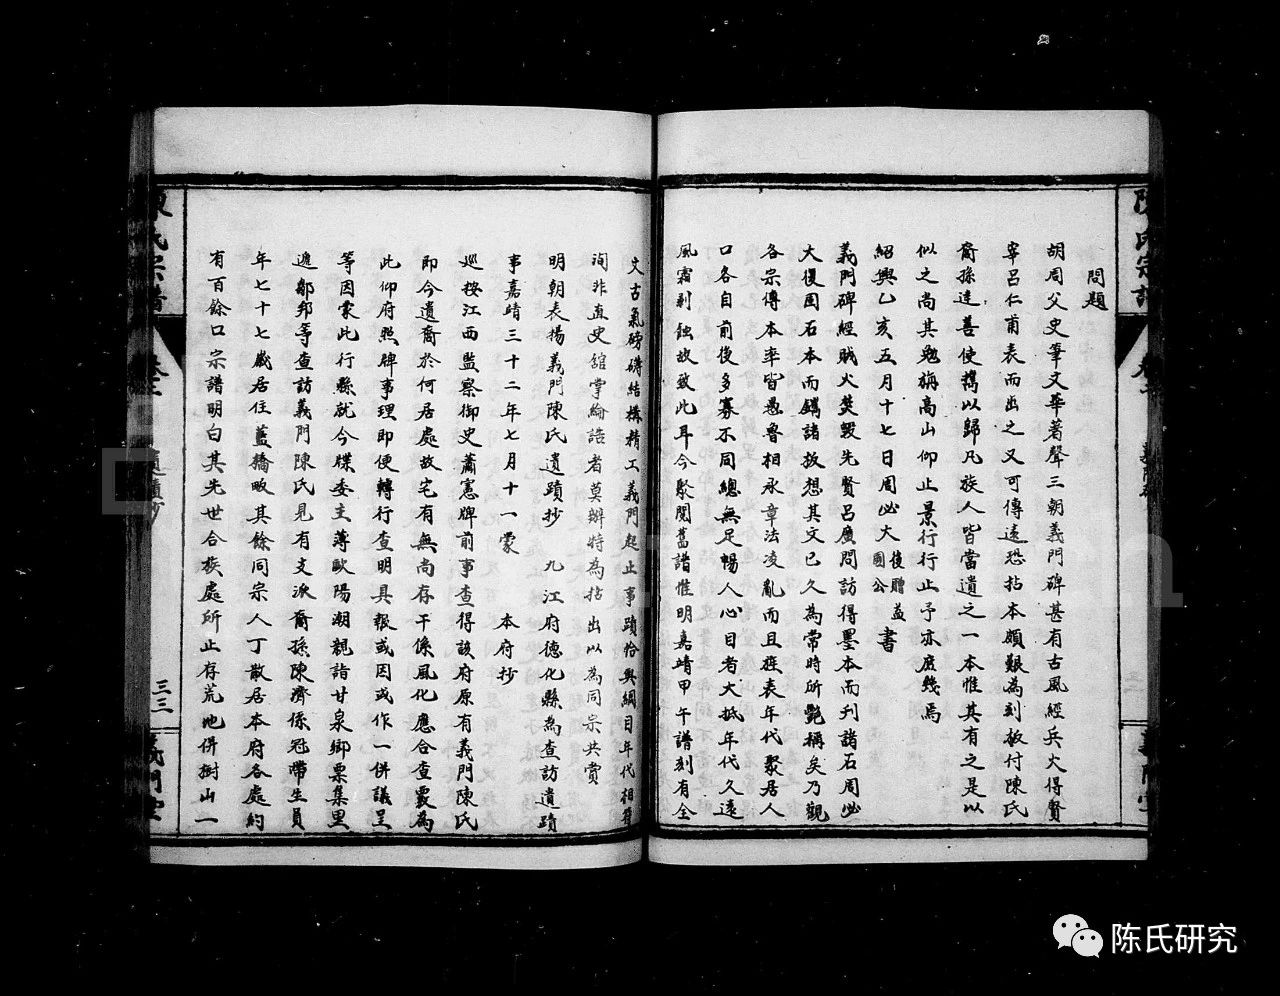 問題
胡周父史筆文華著聲三朝義門碑甚有古風經兵火得賢
宰呂仁甫表而出之又可傳遠恐拈本頗艱為刻板付陳氏
裔孫達善使攜以歸凡族人皆當遺之一本惟其有之是以
似之尚其勉旃高山仰止景行行止予亦庶幾焉
紹興乙亥五月十七日周必大後贈益國公書
義門碑經賊火焚毀先賢呂廣問訪得墨本而刊諸石周必
大復因石本而鐫諸板想其文已久為當時所艷稱矣乃觀
各宗傳本率皆愚魯相承章法凌亂而且旌表年代聚居人
口各自前後多寡不同總無足暢人心目者大抵年代久遠
風霜剥蝕故致此耳今聚閱舊譜惟明嘉靖甲午譜刻有全
文古氣磅礴結構精工義門起止事蹟恰與綱目年代相符
洵非直史舘掌綸誥者莫辦特為拈出以為同宗共賞
明朝表揚義門陳氏遺蹟抄 九江府德化縣為查訪遺蹟
事嘉靖三十二年七月十一蒙 本府抄
巡按江西監察御史蕭憲牌前事查得該府原有義門陳氏
即今遺裔於何居處故宅有無尚存干係風化應合查覈為
此仰府照牌事理即便轉行查明具報或因或作一併議呈
等因蒙此行縣就今牒委主薄歐陽潮親詣甘泉鄉票集里
遞鄒邦等查訪義門陳氏見有支派裔孫陳濟係冠帶生員
年七十七歲居住藍橋畈其餘同宗人丁散居本府各處約
有百餘口宗譜明白其先世合族處所止存荒地併樹山一
陳氏宗譜
遺蹟抄
三三
義門堂
陈氏研究